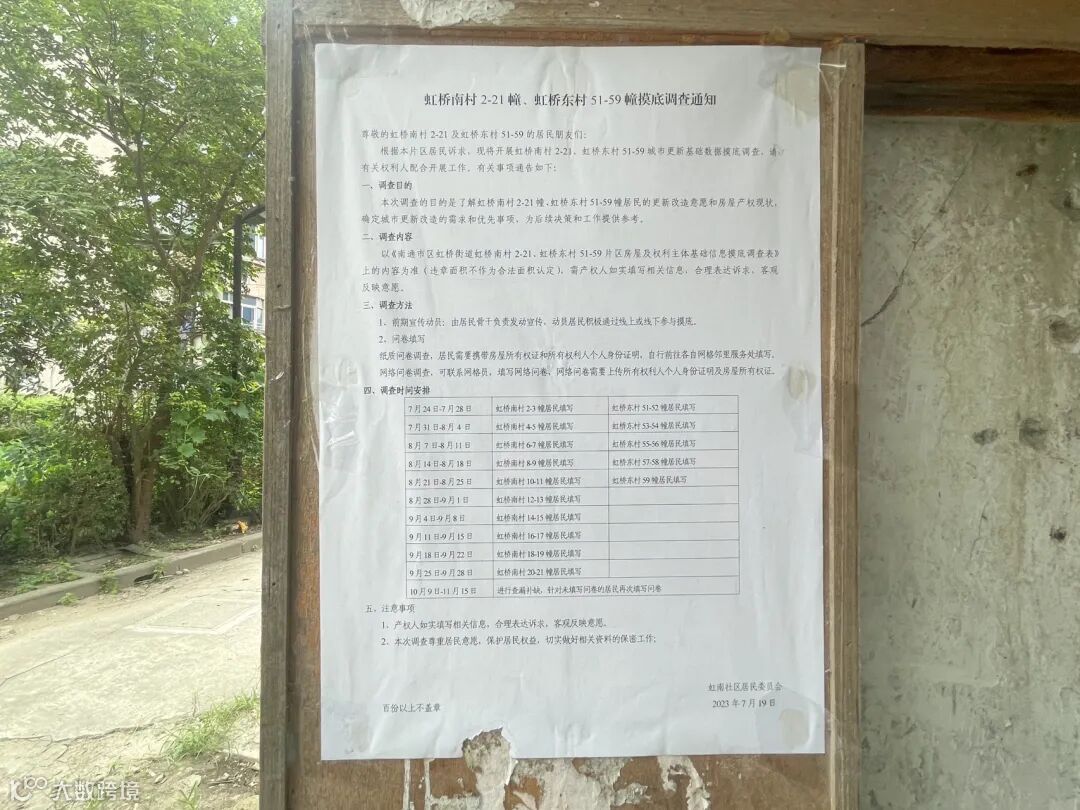 虹桥南村 2-21 幢、虹桥东村 51-59 幢摸底调查通知
尊敬的虹桥南村 2-21 及虹桥东村 51-59 的居民朋友们：
根据本片区居民诉求，现将开展虹桥南村 2-21、虹桥东村 51-59 城市更新基础数据摸底调查，请
有关权利人配合开展工作。有关事项通告如下：
一、调查目的
本次调查的目的是了解虹桥南村 2-21 幢、虹桥东村 51-59 幢居民的更新改造意愿和房屋产权现状，
确定城市更新改造的需求和优先事项，为后续决策和工作提供参考。
二、调查内容
以《南通市区虹桥街道虹桥南村 2-21、虹桥东村 51-59 片区房屋及权利主体基础信息摸底调查表》
上的内容为准（违章面积不作为合法面积认定），需产权人如实填写相关信息，合理表达诉求，客观
反映意愿。
三、调查方法
1、前期宣传动员：由居民骨干负责发动宣传，动员居民积极通过线上或线下参与摸底。
2、问卷填写
纸质问卷调查，居民需要携带房屋所有权证和所有权利人个人身份证明，自行前往各自网格邻里服务处填写。
网络问卷调查，可联系网格员，填写网络问卷，网络问卷需要上传所有权利人个人身份证明及房屋所有权证。
四、调查时间安排
7 月 24 日-7 月 28 日 虹桥南村 2-3 幢居民填写 虹桥东村 51-52 幢居民填写
7 月 31 日-8 月 4 日 虹桥南村 4-5 幢居民填写 虹桥东村 53-54 幢居民填写
8 月 7 日-8 月 11 日 虹桥南村 6-7 幢居民填写 虹桥东村 55-56 幢居民填写
8 月 14 日-8 月 18 日 虹桥南村 8-9 幢居民填写 虹桥东村 57-58 幢居民填写
8 月 21 日-8 月 25 日 虹桥南村 10-11 幢居民填写 虹桥东村 59 幢居民填写
8 月 28 日-9 月 1 日 虹桥南村 12-13 幢居民填写
9 月 4 日-9 月 8 日 虹桥南村 14-15 幢居民填写
9 月 11 日-9 月 15 日 虹桥南村 16-17 幢居民填写
9 月 18 日-9 月 22 日 虹桥南村 18-19 幢居民填写
9 月 25 日-9 月 28 日 虹桥南村 20-21 幢居民填写
10 月 9 日-11 月 15 日 进行查漏补缺，针对未填写问卷的居民再次填写问卷
五、注意事项
1、产权人如实填写相关信息，合理表达诉求，客观反映意愿。
2、本次调查尊重居民意愿，保护居民权益，切实做好相关资料的保密工作；
虹南社区居民委员会
2023 年 7 月 19 日
百份以上不盖章
大数跨境